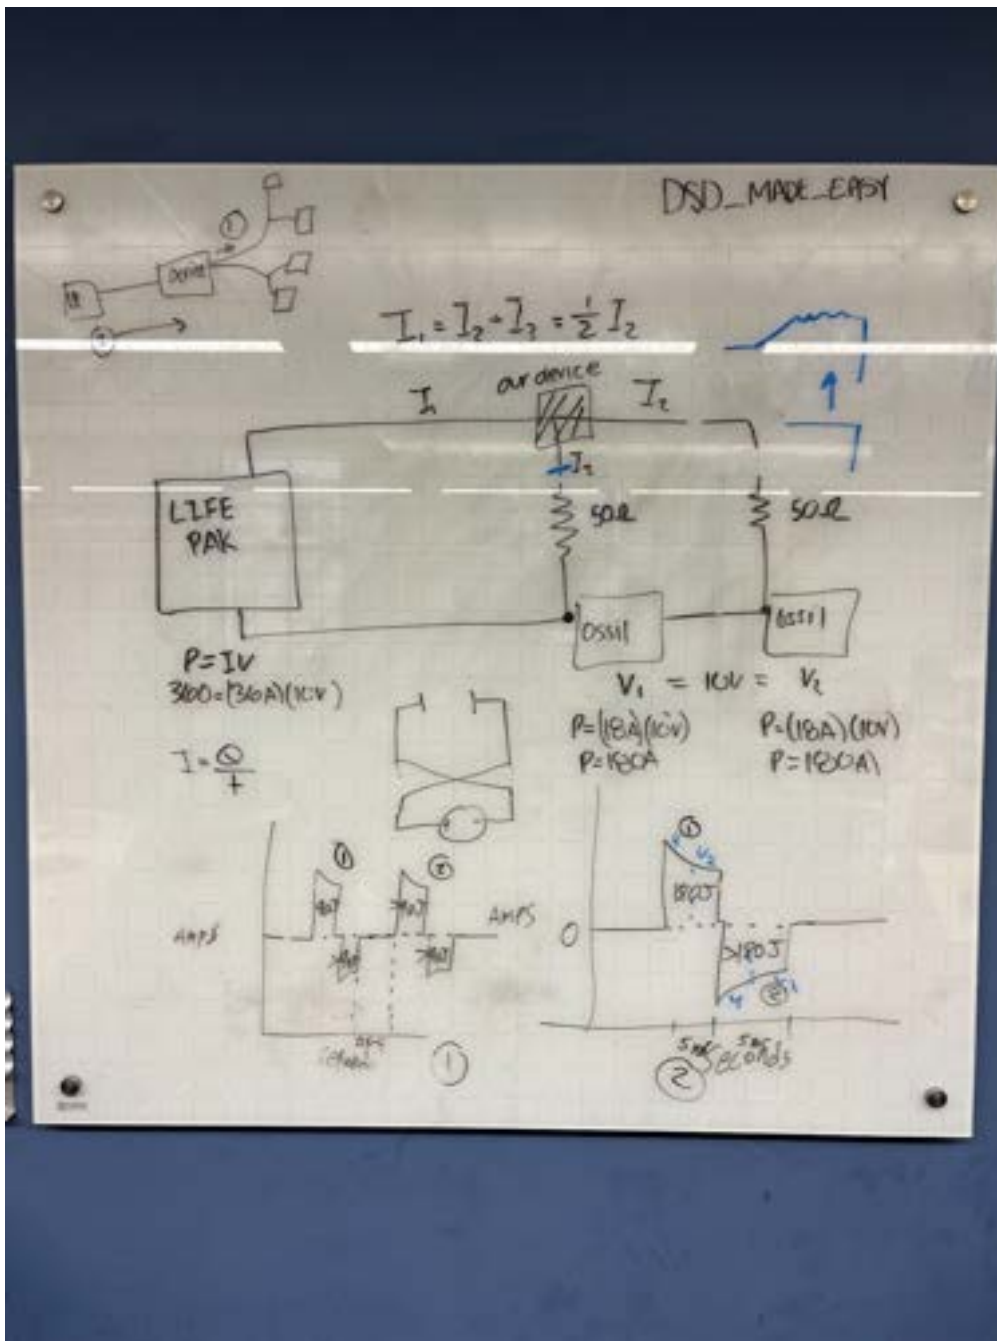 DSD_MADE_EASY
Device
I₁ = I₂ + I₃ = ½ I₂
our device
I₁
I₂
LIFE
PAK
50Ω
50Ω
OSSIL
OSSIL
P=IV
360=(36A)(10V)
V₁ = 10V = V₂
P=(18A)(10V)
P=180A
P=(18A)(10V)
P=180A
I = Q/t
①
②
AMPS
90J
AMPS
①
0
①
180J
>180J
②
5ms
5ms
seconds
②